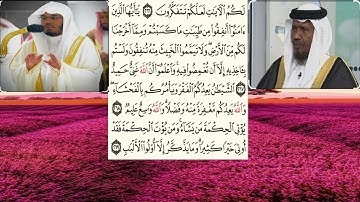 لَكُمُ ٱلْءَايَٰتِ لَعَلَّكُمْ تَتَفَكَّرُونَ ٢٦٦ يَٰٓأَيُّهَا ٱلَّذِينَ
ءَامَنُوٓا۟ أَنفِقُوا۟ مِن طَيِّبَٰتِ مَا كَسَبْتُمْ وَمِمَّآ أَخْرَجْنَا
لَكُم مِّنَ ٱلْأَرْضِ وَلَا تَيَمَّمُوا۟ ٱلْخَبِيثَ مِنْهُ تُنفِقُونَ وَلَسْتُم
بِـَٔاخِذِيهِ إِلَّآ أَن تُغْمِضُوا۟ فِيهِ وَٱعْلَمُوٓا۟ أَنَّ ٱللَّهَ غَنِىٌّ حَمِيدٌ
ٱلشَّيْطَٰنُ يَعِدُكُمُ ٱلْفَقْرَ وَيَأْمُرُكُم بِٱلْفَحْشَآءِ
وَٱللَّهُ يَعِدُكُم مَّغْفِرَةً مِّنْهُ وَفَضْلًا وَٱللَّهُ وَٰسِعٌ عَلِيمٌ ٢٦٨
يُؤْتِى ٱلْحِكْمَةَ مَن يَشَآءُ وَمَن يُؤْتَ ٱلْحِكْمَةَ فَقَدْ
أُوتِىَ خَيْرًا كَثِيرًا وَمَا يَذَّكَّرُ إِلَّآ أُو۟لُوا۟ ٱلْأَلْبَٰبِ ٢٦٩